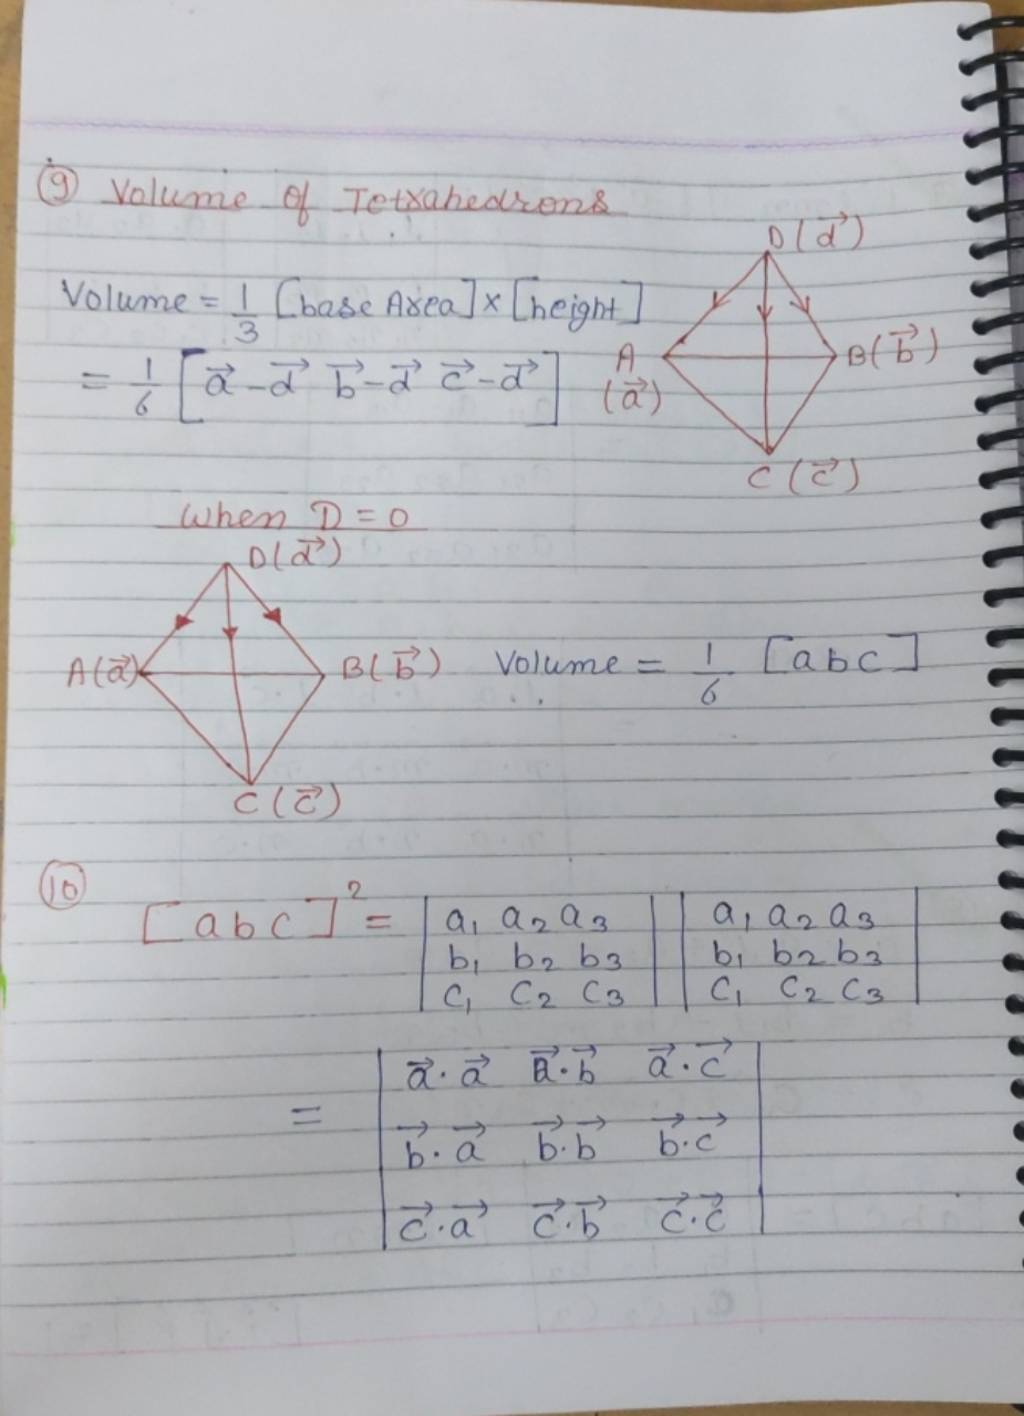 ⑨ Volume of Tetrahedrons
D(d⃗)
Volume = 1/3 [base Area] × [height]
A (a⃗)
B(b⃗)
= 1/6 [a⃗-d⃗ b⃗-d⃗ c⃗-d⃗]
C (c⃗)
When D = 0
D(d⃗)
A(a⃗)
B(b⃗)
Volume = 1/6 [abc]
C (c⃗)
⑩
[abc]² = | a₁ a₂ a₃ | | a₁ a₂ a₃ |
| b₁ b₂ b₃ | | b₁ b₂ b₃ |
| c₁ c₂ c₃ | | c₁ c₂ c₃ |
= | a⃗·a⃗ a⃗·b⃗ a⃗·c⃗ |
| b⃗·a⃗ b⃗·b⃗ b⃗·c⃗ |
| c⃗·a⃗ c⃗·b⃗ c⃗·c⃗ |